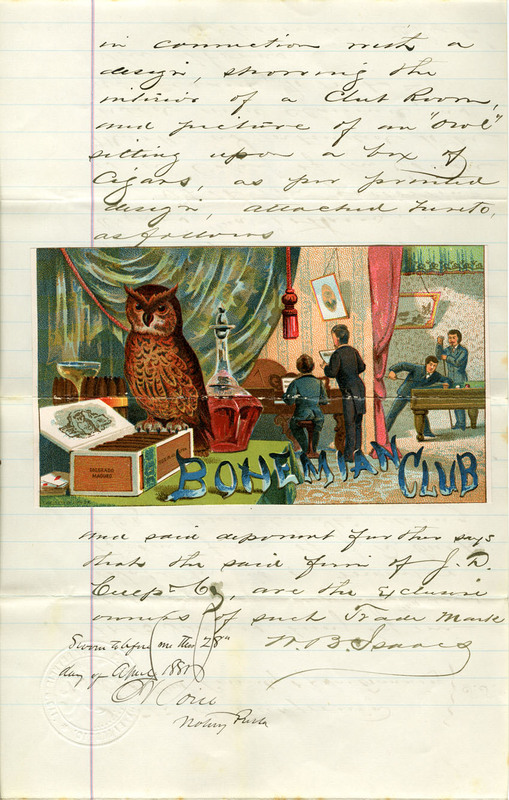 in connection with a
design, showing the
interior of a Club Room,
and picture of an "Owl"
sitting upon a box of
Cigars, as per printed
design, attached hereto,
as follows
COLORADO
MADURO
BOHEMIAN CLUB
and said deponent further says
that the said firm of J. D.
& Co, are the Exclusive
owners of such Trade Mark
W. B. Isaacs
Sworn to before me this 28th
day of April 1881
Notary Public